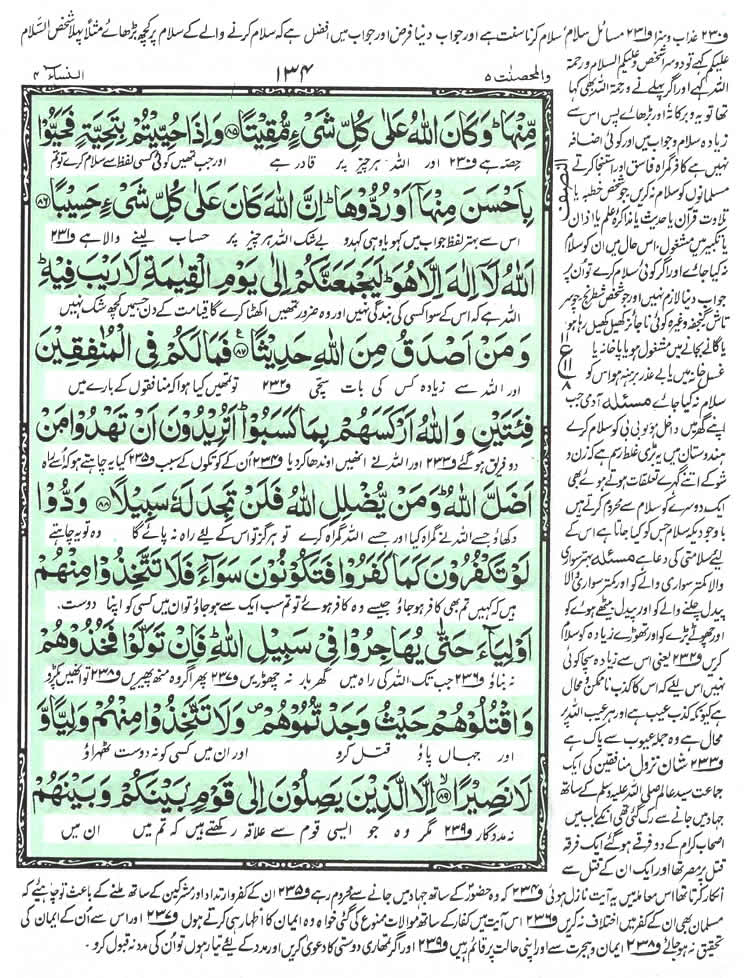 ف۲۳۰ عذاب وسزا ف۲۳۱ مسائل سلام سلام کرنا سنت ہے اور جواب دینا فرض اور جواب میں افضل ہے کہ سلام کرنے والے کے سلام پر کچھ بڑھائے مثلاً پہلا شخص السلام
والمحصنت ۵
۱۳۴
النساء ۴
مِّنْهَا ؕ وَ كَانَ اللّٰهُ عَلٰى كُلِّ شَیْءٍ مُّقِیْتًا ﴿۸۵﴾ وَ اِذَا حُیِّیْتُمْ بِتَحِیَّةٍ فَحَیُّوْا
حصّہ ہے ف۲۳۰ اور اللہ ہر چیز پر قادر ہے اور جب تمھیں کوئی کسی لفظ سے سلام کرے تو تم
بِاَحْسَنَ مِنْهَاۤ اَوْ رُدُّوْهَا ؕ اِنَّ اللّٰهَ كَانَ عَلٰى كُلِّ شَیْءٍ حَسِیْبًا ﴿۸۶﴾
اس سے بہتر لفظ جواب میں کہو یا وہی کہدو بے شک اللہ ہر چیز پر حساب لینے والا ہے ف۲۳۱
اَللّٰهُ لَاۤ اِلٰهَ اِلَّا هُوَ ؕ لَیَجْمَعَنَّكُمْ اِلٰى یَوْمِ الْقِیٰمَةِ لَا رَیْبَ فِیْهِ ؕ
اللہ ہے کہ اس کے سوا کسی کی بندگی نہیں اور وہ ضرور تمھیں اکھٹا کرے گا قیامت کے دن جسمیں کچھ شک نہیں
وَ مَنْ اَصْدَقُ مِنَ اللّٰهِ حَدِیْثًا ﴿۸۷﴾ فَمَا لَكُمْ فِی الْمُنٰفِقِیْنَ
اور اللہ سے زیادہ کس کی بات سچی ف۲۳۲ تو تمھیں کیا ہوا کہ منافقوں کے بارے میں
فِئَتَیْنِ وَ اللّٰهُ اَرْكَسَهُمْ بِمَا كَسَبُوْا ؕ اَتُرِیْدُوْنَ اَنْ تَهْدُوْا مَنْ
دو فریق ہو گئے ف۲۳۳ اور اللہ نے انھیں اوندھا کر دیا ف۲۳۴ اُن کے کوتکوں کے سبب ف۲۳۵ کیا یہ چاہتے ہو کہ اُسے راہ
اَضَلَّ اللّٰهُ ؕ وَ مَنْ یُّضْلِلِ اللّٰهُ فَلَنْ تَجِدَ لَهٗ سَبِیْلًا ﴿۸۸﴾ وَدُّوْا
دکھاؤ جسے اللہ نے گمراہ کیا اور جسے اللہ گمراہ کرے تو ہرگز تو اس کے لیے راہ نہ پائے گا وہ تو یہ چاہتے
لَوْ تَكْفُرُوْنَ كَمَا كَفَرُوْا فَتَكُوْنُوْنَ سَوَآءً فَلَا تَتَّخِذُوْا مِنْهُمْ
ہیں کہ کہیں تم بھی کافر ہو جاؤ جیسے وہ کافر ہوئے تو تم سب ایک سے ہو جاؤ تو ان میں کسی کو اپنا دوست
اَوْلِیَآءَ حَتّٰى یُهَاجِرُوْا فِیْ سَبِیْلِ اللّٰهِ ؕ فَاِنْ تَوَلَّوْا فَخُذُوْهُمْ
نہ بناؤ ف۲۳۶ جب تک اللہ کی راہ میں گھر بار نہ چھوڑیں ف۲۳۷ پھر اگر وہ منھ پھیریں ف۲۳۸ تو انھیں پکڑو
وَ اقْتُلُوْهُمْ حَیْثُ وَجَدْتُّمُوْهُمْ ۪ وَ لَا تَتَّخِذُوْا مِنْهُمْ وَلِیًّا وَّ
اور جہاں پاؤ قتل کرو اور ان میں کسی کو نہ دوست ٹھہراؤ
لَا نَصِیْرًا ﴿۸۹﴾ اِلَّا الَّذِیْنَ یَصِلُوْنَ اِلٰى قَوْمٍۭ بَیْنَكُمْ وَ بَیْنَهُمْ
نہ مددگار ف۲۳۹ مگر وہ جو ایسی قوم سے علاقہ رکھتے ہیں کہ تم میں ان میں
النصف
علیکم کہے تو دوسرا شخص وعلیکم السلام ورحمۃ
اللہ کہے اور اگر پہلے نے ورحمۃ اللہ بھی کہا
تھا تو یہ وبرکاتہ اور بڑھائے پس اس سے
زیادہ سلام و جواب میں اور کوئی اضافہ
نہیں ہے کافر گمراہ فاسق اور استنجا کرتے
مسلمانوں کو سلام نہ کریں جو شخص خطبہ یا
تلاوت قرآن یا حدیث یا مذاکرہ علم یا اذان
یا تکبیر میں مشغول ہو اس حال میں ان کو سلام
نہ کیا جائے اور اگر کوئی سلام کرے تو اُن پر
جواب دینا لازم نہیں اور جو شخص شطرنج چوسر
تاش گنجفہ وغیرہ کوئی ناجائز کھیل کھیل رہا ہو
یا گانے بجانے میں مشغول ہو یا پاخانہ یا
غسل خانہ میں یا بے عذر برہنہ ہو اس کو
سلام نہ کیا جائے مسئلہ آدمی جب
اپنے گھر میں داخل ہو تو بی بی کو سلام کرے
ہندوستان میں یہ بڑی غلط رسم ہے کہ زن و
شو کے اتنے گہرے تعلقات ہوتے ہوئے بھی
ایک دوسرے کو سلام سے محروم کرتے ہیں
باوجودیکہ سلام جس کو کیا جاتا ہے اس کے
لیے سلامتی کی دعا ہے مسئلہ بہتر سواری
والا کمتر سواری والے کو اور کمتر سواری والا
پیدل چلنے والے کو اور پیدل بیٹھے ہوئے کو
اور چھوٹے بڑے کو اور تھوڑے زیادہ کو سلام
کریں ف۲۳۲ یعنی اس سے زیادہ سچا کوئی
نہیں اس لیے کہ اس کا کذب ناممکن و محال
ہے کیونکہ کذب عیب ہے اور ہر عیب اللہ پر
محال ہے وہ جملہ عیوب سے پاک ہے
ف۲۳۳ شان نزول منافقین کی ایک
جماعت سید عالم صلی اللہ علیہ وسلم کے ساتھ
جہاد میں جانے سے رک گئی تھی انکے باب میں
اصحاب کرام کے دو فرقے ہو گئے ایک فرقہ
قتل پر مصر تھا اور ایک ان کے قتل سے
انکار کرتا تھا اس معاملہ میں یہ آیت نازل ہوئی ف۲۳۴ کہ وہ حضور کے ساتھ جہاد میں جانے سے محروم رہے ف۲۳۵ ان کے کفر و ارتداد اور مشرکین کے ساتھ ملنے کے باعث تو چاہیئے کہ
مسلمان بھی ان کے کفر میں اختلاف نہ کریں ف۲۳۶ اس آیت میں کفار کے ساتھ موالات ممنوع کی گئی خواہ وہ ایمان کا اظہار ہی کرتے ہوں ف۲۳۷ اور اس سے اُن کے ایمان کی
تحقیق نہ ہو جائے ف۲۳۸ ایمان و ہجرت سے اور اپنی حالت پر قائم رہیں ف۲۳۹ اور اگر تمھاری دوستی کا دعویٰ کریں اور مدد کے لیے تیار ہوں تو اُن کی مدد نہ قبول کرو۔